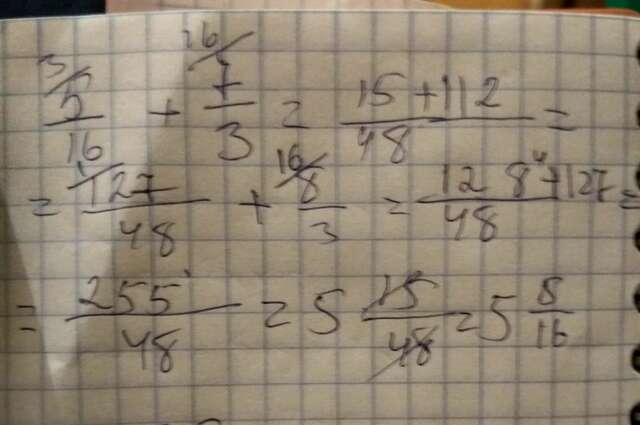 3/ 5/16 + 16/ 7/3 = (15+112)/48 =
= 1/ 127/48 + 16/ 8/3 = (128+127)/48 =
= 255/48 = 5 15/48 = 5 5/16